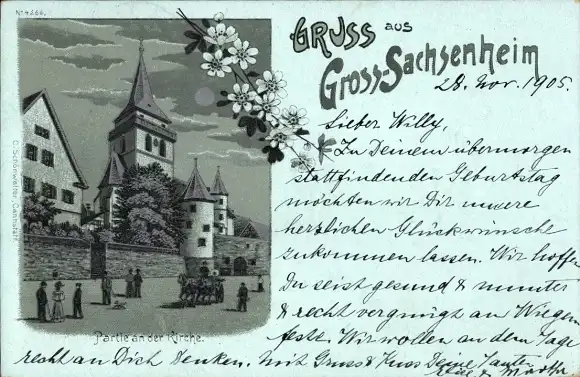 No 4266.
GRUSS aus
Gross-Sachsenheim
28. Nov. 1905.
Lieber Willy,
Zu Deinem übermorgen
stattfindenden Geburtstag
möchten wir Dir unsere
herzlichen Glückwünsche
zukommen lassen. Wir hoffen
Du seist gesund & munter
& recht vergnügt an Wiegen
feste. Wir wollen an dem Tage
recht an Dich denken. Mit Gruss & Kuss Deine Tanten
& Martha
Partie an der Kirche.